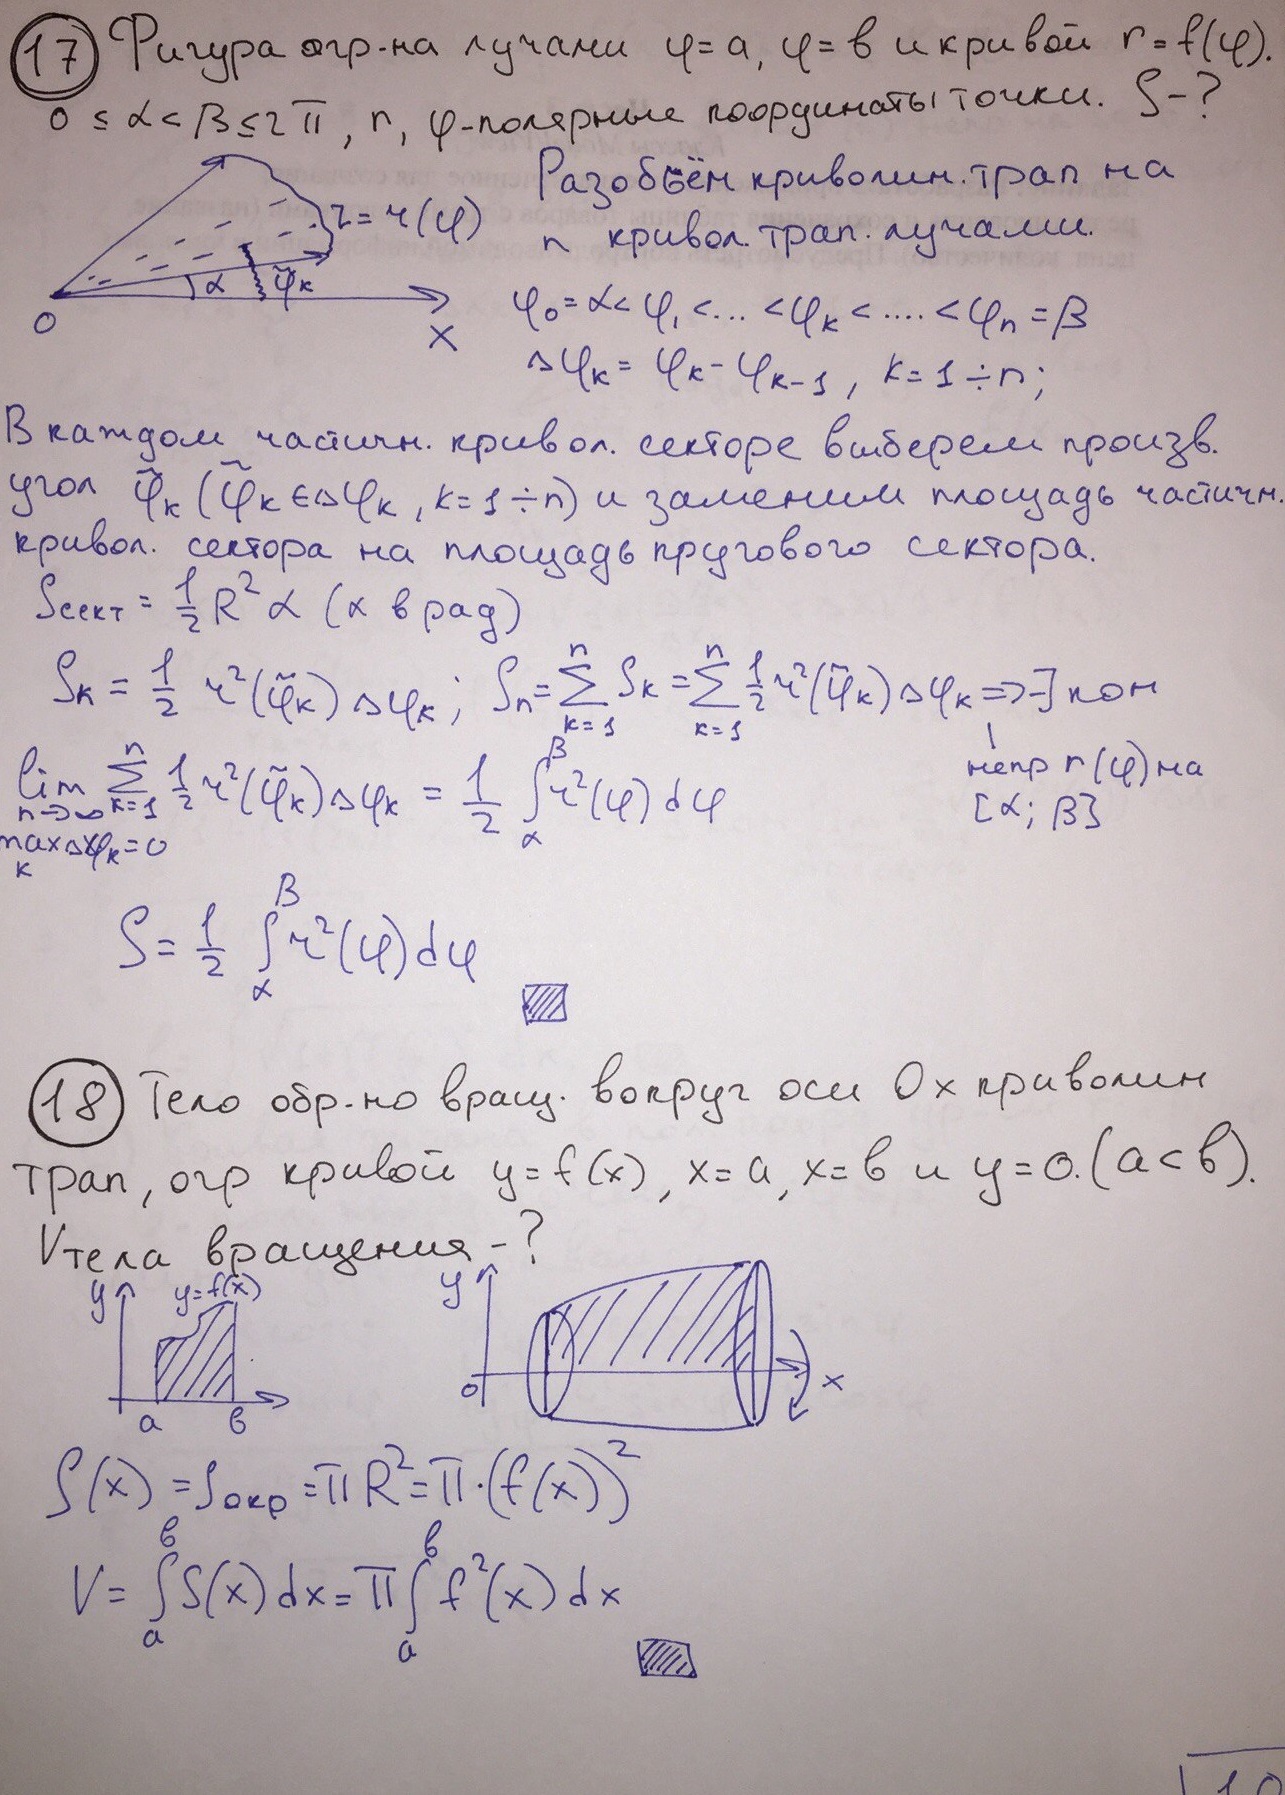 17 Фигура огр-на лучами φ=a, φ=в и кривой r=f(φ).
0≤α<β≤2π, r, φ-полярные координаты точки. S-?
Разобьём криволин. трап на
n кривол. трап. лучами.
r=r(φ)
α φ̃к
O X
φ₀=α<φ₁<...<φк<....<φn=β
△φк=φк-φк-1, k=1÷n;
В каждом частичн. кривол. секторе выберем произв.
угол φ̃к (φ̃к∈△φк, k=1÷n) и заменим площадь частичн.
кривол. сектора на площадь кругового сектора.
Sсект = 1/2 R² α (α в рад)
Sк = 1/2 r²(φ̃к)△φк; Sn=∑ⁿₖ₌₁ Sк=∑ⁿₖ₌₁ 1/2 r²(φ̃к)△φк => ∃ кон
непр r(φ) на
[α; β]
lim n→∞ ∑ⁿₖ₌₁ 1/2 r²(φ̃к)△φк = 1/2 ∫αβ r²(φ)dφ
max△φк=0
к
S=1/2 ∫αβ r²(φ)dφ
18 Тело обр-но вращ. вокруг оси Ox криволин
трап, огр кривой y=f(x), x=a, x=в и y=0. (a<в).
Vтела вращения -?
y y=f(x) a в
y 0 x
S(x)=Sокр=πR²=π·(f(x))²
V=∫aв S(x)dx=π∫aв f²(x)dx